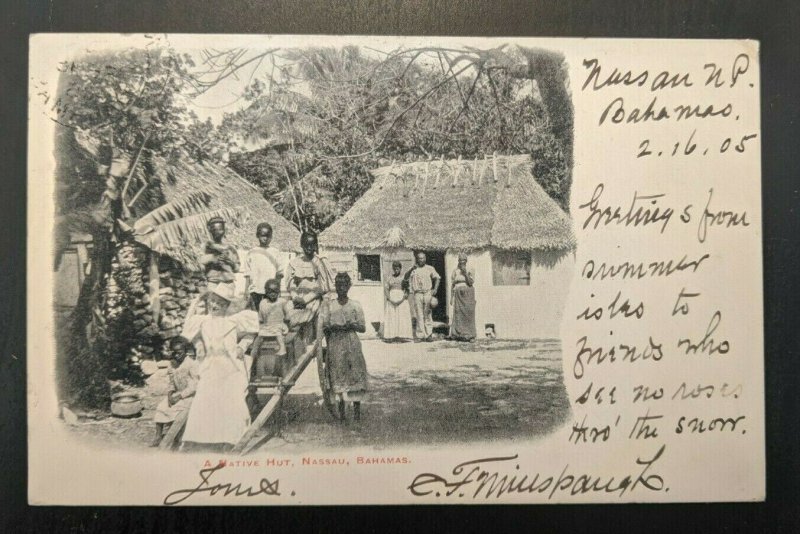 Nassau N.P.
Bahamas.
2.16.05
Greetings from
summer
isles to
friends who
see no roses
thro' the snow.
A NATIVE HUT, NASSAU, BAHAMAS.